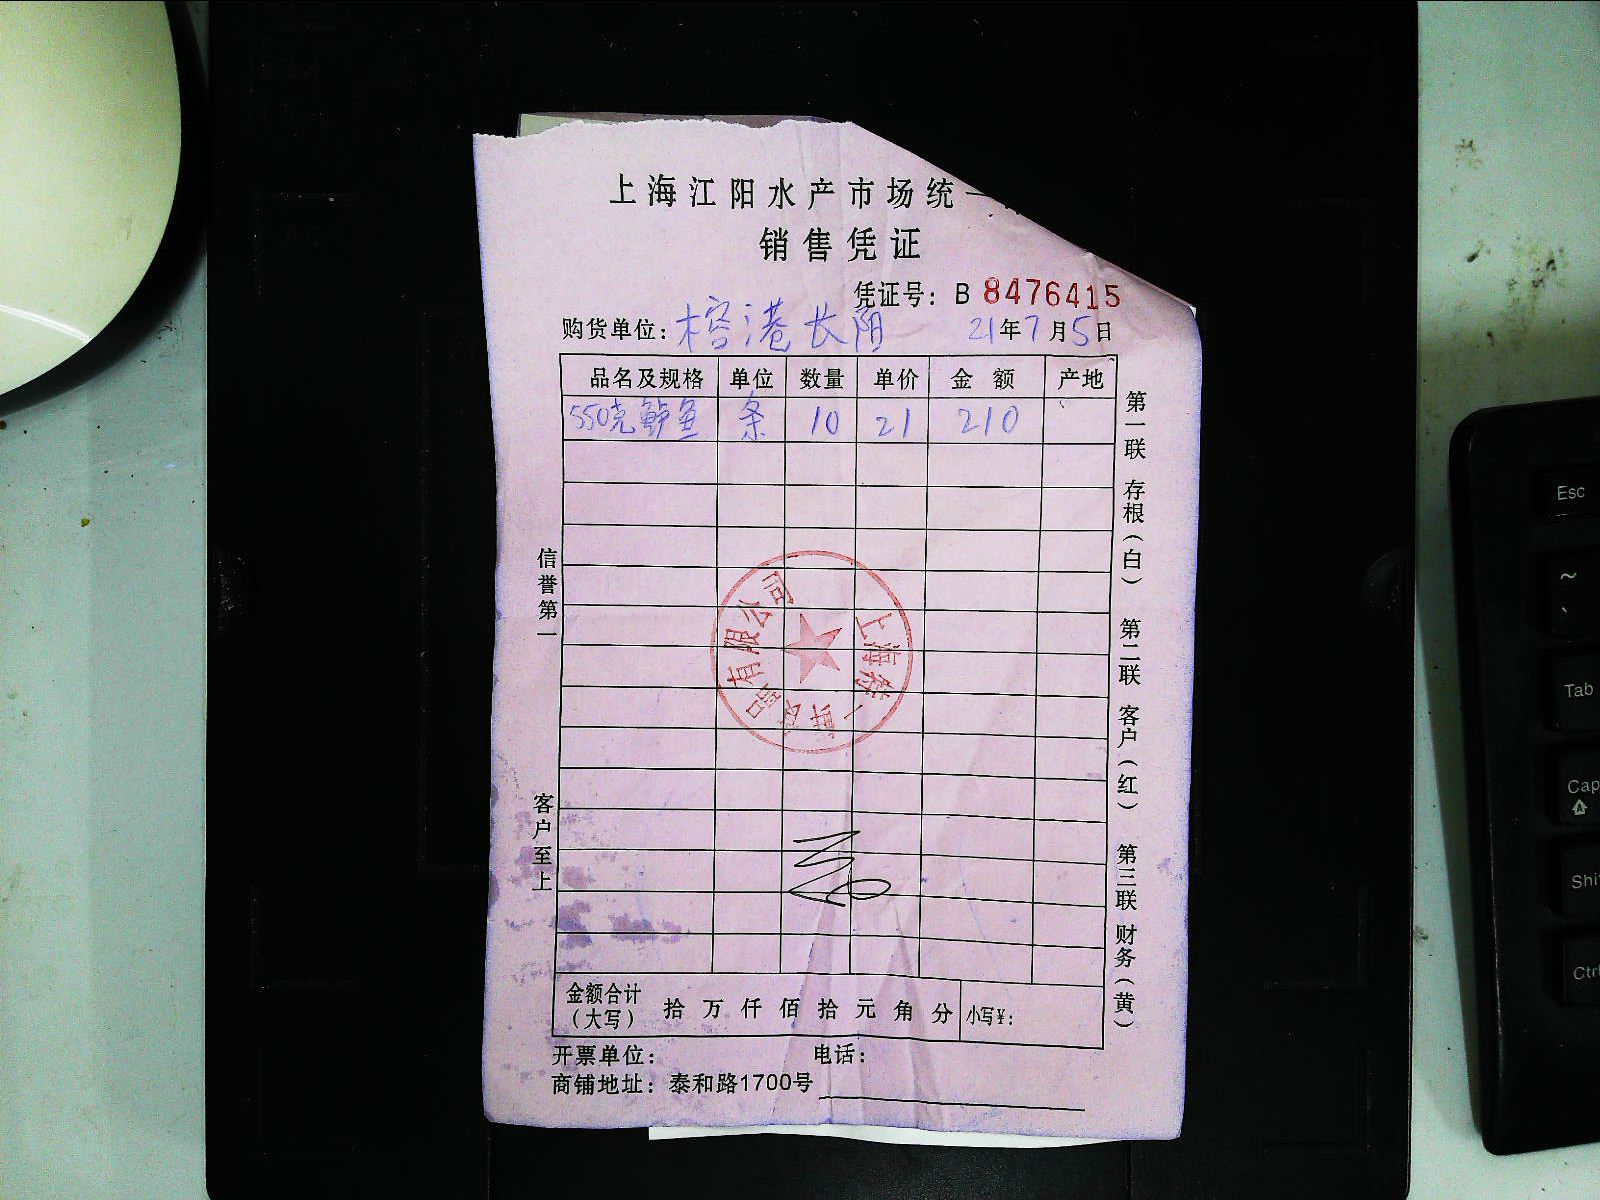 上海江阳水产市场统一
销售凭证
凭证号：B 8476415
购货单位：榕港长阳 21年7月5日
品名及规格 单位 数量 单价 金额 产地
550克鲈鱼 条 10 21 210
信誉第一
客户至上
第一联 存根（白） 第二联 客户（红） 第三联 财务（黄）
有限公司
上海
金额合计（大写） 拾万仟佰拾元角分 小写¥：
开票单位： 电话：
商铺地址：泰和路1700号
Esc
~
`
Tab
Cap
Shi
Ctrl